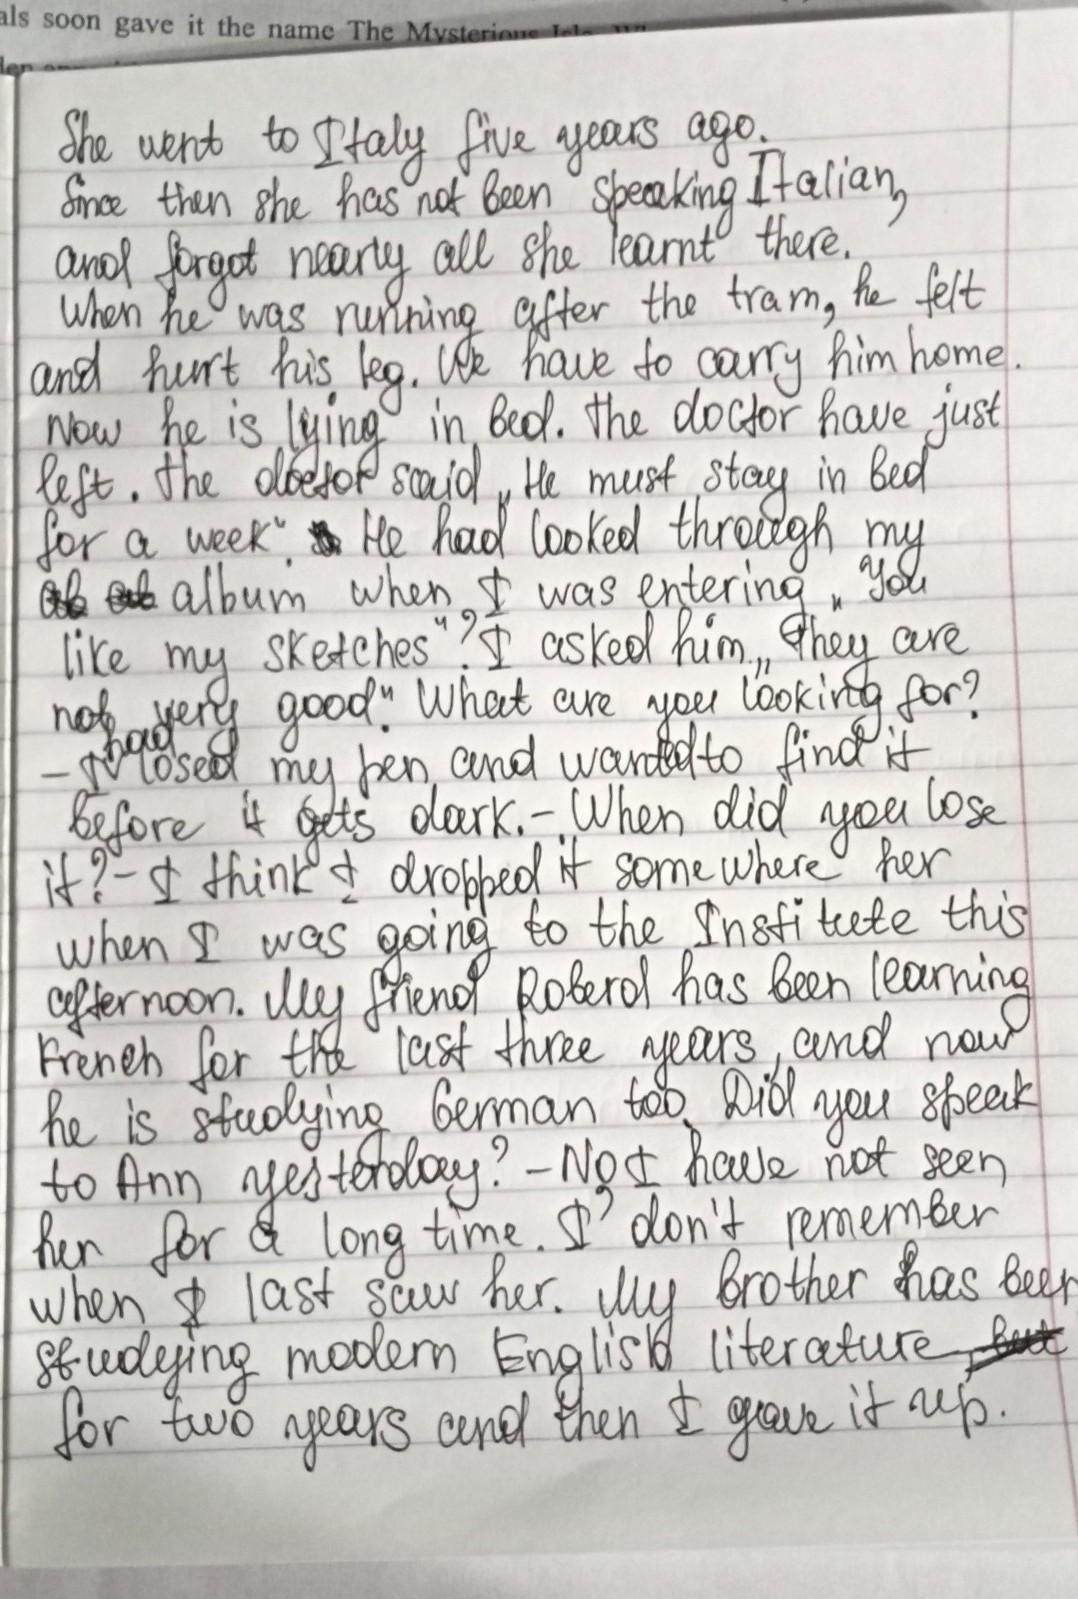 als soon gave it the name The Mysterious Isle
She went to Italy five years ago.
Since then she has not been speaking Italian,
and forgot nearly all she learnt there.
When he was running after the tram, he felt
and hurt his leg. We have to carry him home.
Now he is lying in bed. The doctor have just
left. The doctor said „He must stay in bed
for a week". He had looked through my
album when I was entering „You
like my sketches"? I asked him, „They are
not very good". What are you looking for?
- I had losed my pen and wanted to find it
before it gets dark. - When did you lose
it? - I think I dropped it somewhere her
when I was going to the Institute this
afternoon. My friend Roberd has been learning
French for the last three years, and now
he is studying German too. Did you speak
to Ann yesterday? - No, I have not seen
her for a long time. I don't remember
when I last saw her. My brother has been
studying modern English literature
for two years and then I gave it up.